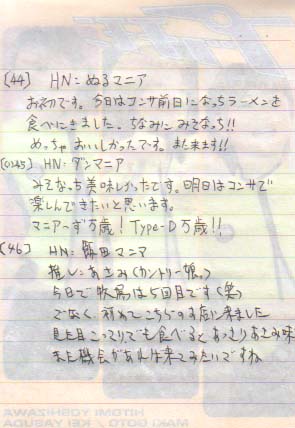 [44] HN:ぬるマニア
お初です。今日はコンサ前日になっちラーメンを
食べにきました。ちなみにみそなっち!!
めっちゃおいしかったです。また来ます!!
[0245] HN:ダンマニア
みそなっち美味しかったです。明日はコンサで
楽しんできたいと思います。
マニア〜ず万歳!Type-D万歳!!
[46] HN:飯田マニア
推し:あさみ(カントリー娘。)
今日で牧属は5回目です(笑)
でなく、初めてこちらのお店に来ました
見た目こってりでも食べるとあっさりあさみ味
また機会があれば来てみたいですね
HITOMI YOSHIZAWA
MAKI GOTO / KEI YASUDA